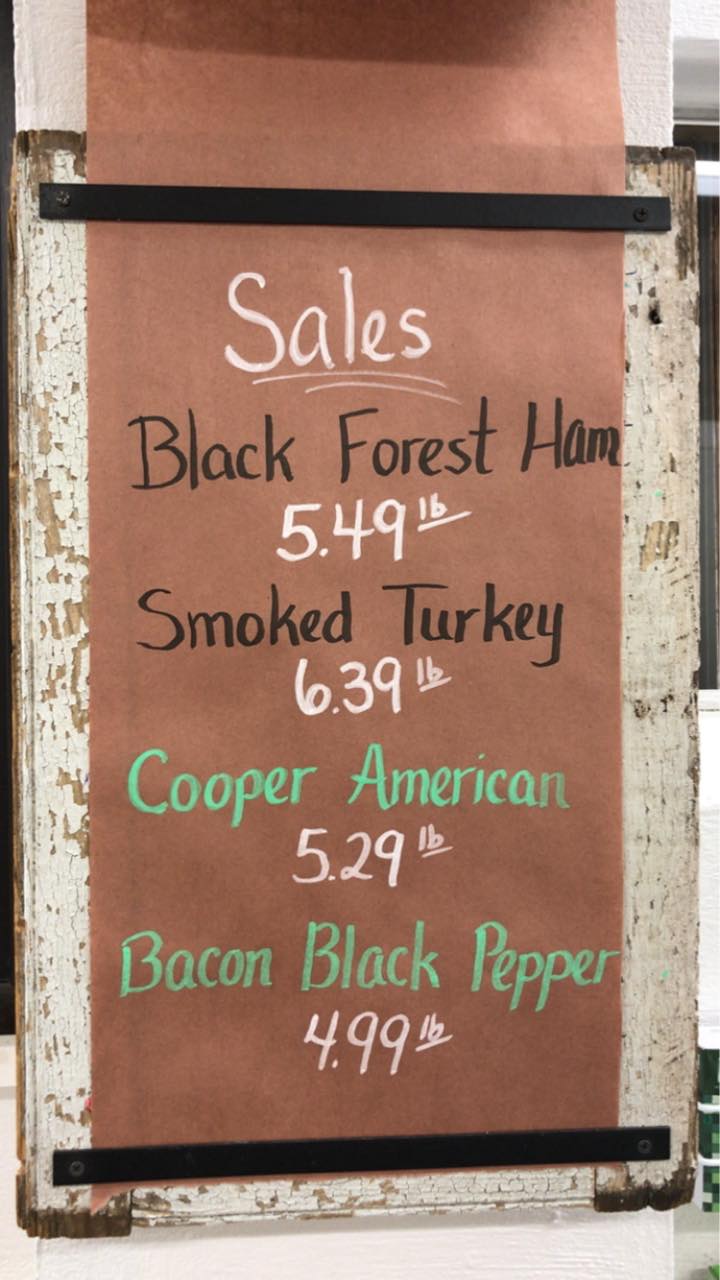 Sales
Black Forest Ham
5.49 lb
Smoked Turkey
6.39 lb
Cooper American
5.29 lb
Bacon Black Pepper
4.99 lb